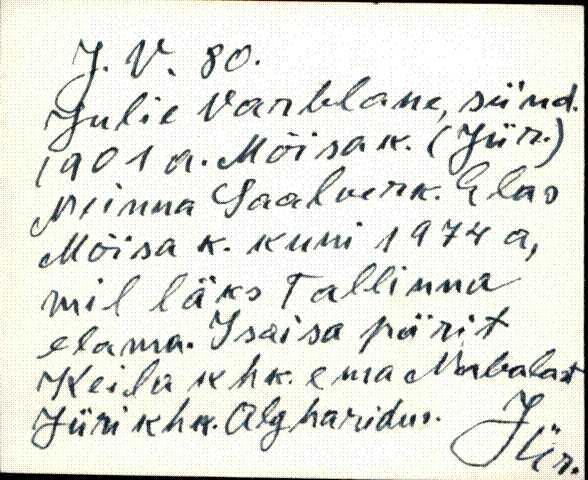 J. V. 80.
Julie Varblane, sünd.
1901 a. Mõisa k. (Jür.)
Meinna Saalverk. Elas
Mõisa k. kuni 1974 a,
mil läks Tallinna
elama. Isaisa pärit
Keila khk. ema Nabalast
Jüri khk. Algharidus.
Jür.